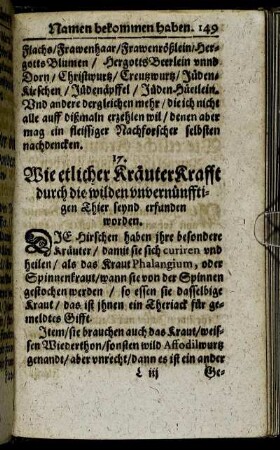 Namen bekommen haben. 149
Flachs/Frawenhaar/Frawenrößlein/Her-
gotts Blumen / Hergotts Beerlein vnnd
Dorn / Christwurtz/ Creutzwurtz/ Jüden-
Kirschen / Jüdenäpffel / Jüden-Häetlein.
Vnd andere dergleichen mehr/ die ich nicht
alle auff dißmaln erzehlen wil / denen aber
mag ein fleissiger Nachforscher selbsten
nachdencken.
17.
Wie etlicher KräuterKrafft
durch die wilden vnvernünffti-
gen Thier seynd erfunden
worden.
DIE Hirschen haben jhre besondere
Kräuter/ damit sie sich curiren vnd
heilen/ als das Kraut Phalangium, oder
Spinnenkraut/wann sie von der Spinnen
gestochen werden / so essen sie dasselbige
Kraut/ das ist jhnen ein Theriack für ge-
meldtes Gifft.
Item/sie brauchen auch das Kraut/weis-
sen Wiederthon/sonsten wild Affodilwurtz
genandt/ aber vnrecht/dann es ist ein ander
L iij Ge-